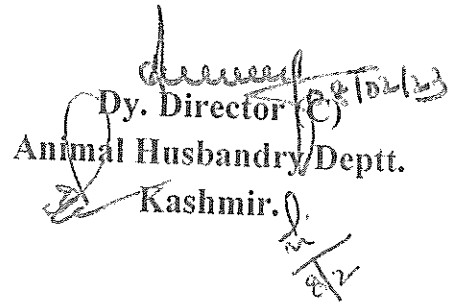 8/02/23
Dy. Director (C)
Animal Husbandry Deptt.
Kashmir.
8/2